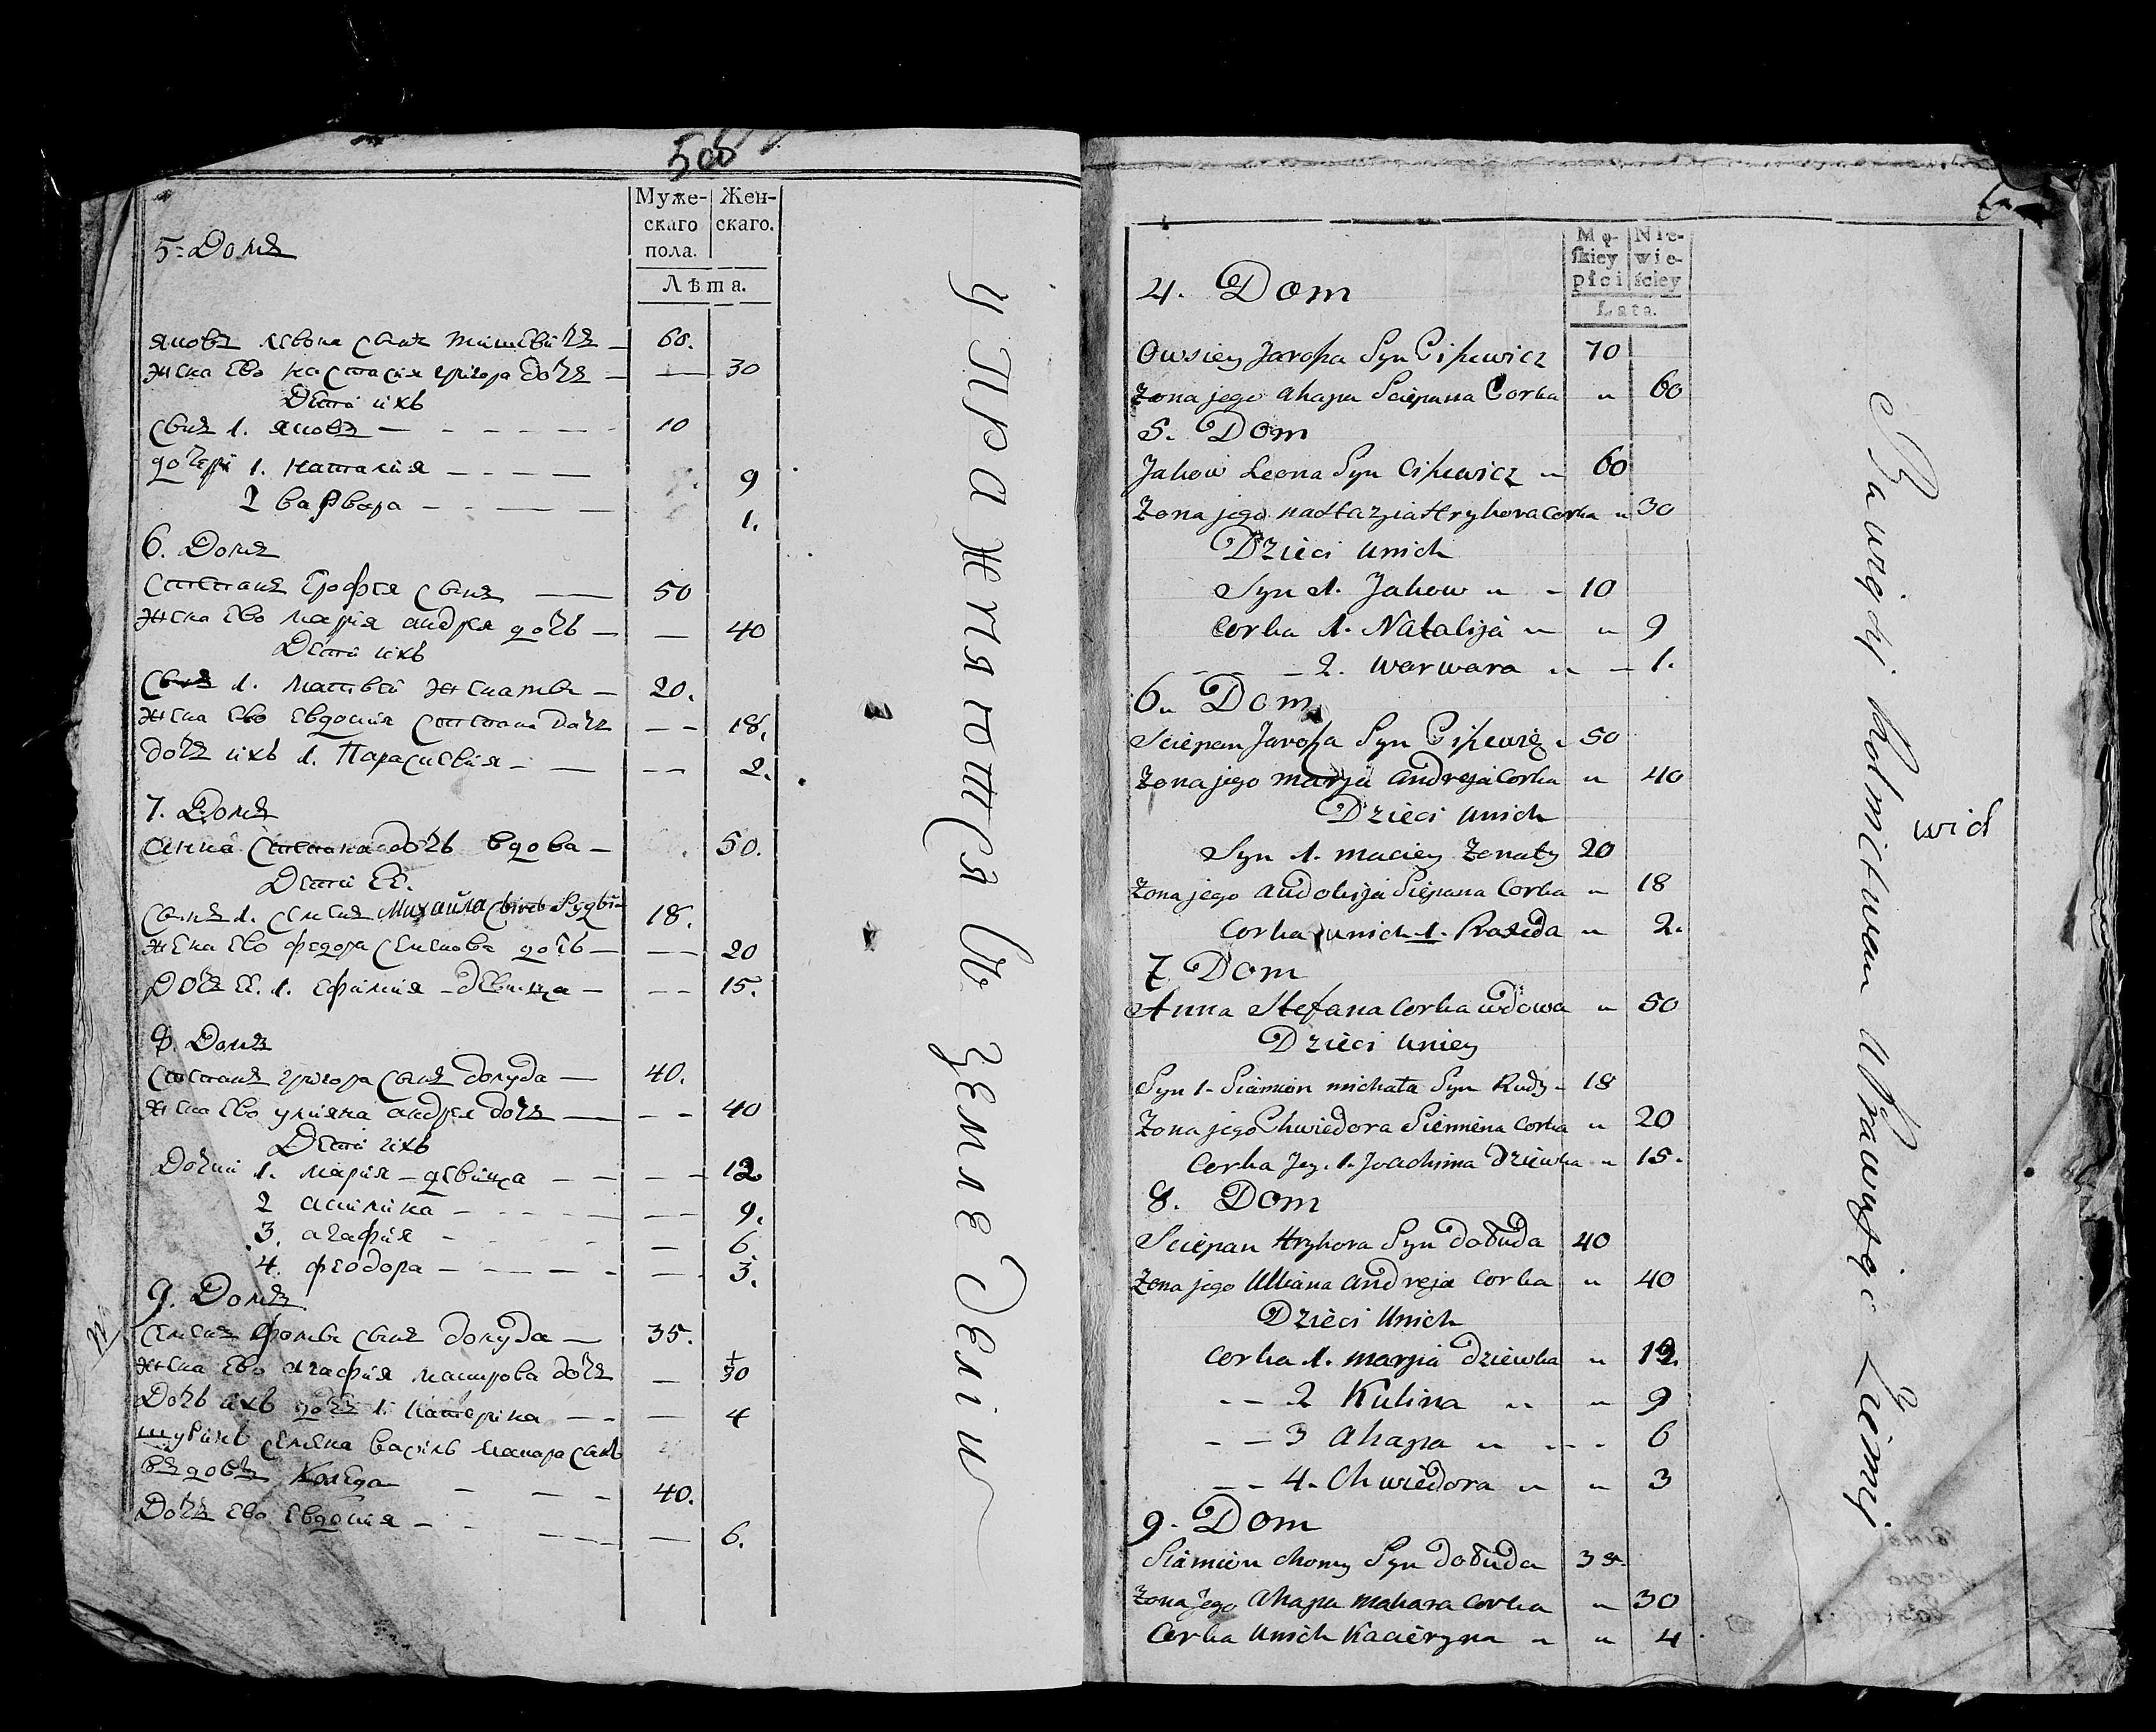 500
Муже-
скаго
пола.
Жен-
скаго.
Лѣта.
5. Домъ
яковъ левона сынъ 60.
жена ево настасія григора дочъ — — 30
Дети ихъ
сынъ 1. яковъ — 10
дочери 1. наталія — 9
2 варвара — 1.
6. Домъ
степанъ ерофея сынъ — 50
жена ево марія андрея дочь — — 40
Дети ихъ
сынъ 1. матвей женатъ — 20.
жена ево евдокия степана дочъ — 18.
дочъ ихъ 1. Параскевія — 2.
7. Домъ
анна степана дочь вдова — 50.
Дети ее.
сынъ 1. семенъ Михайла сынъ 18.
жена ево федора семенова дочь — 20
Дочъ ее. 1. ефимия — девица — 15.
8. Домъ
степанъ григора сынъ долуда — 40.
жена ево уляяна андрея дочъ — 40
Дети ихъ
Дочки 1. марія — девица — 12
2 акилина — 9.
3. агафія — 6.
4. феодора — 3.
9. Домъ
семенъ фомы сынъ долуда — 35.
жена ево агафія макарова дочъ — 30
Дочь ихъ 1. катерина — 4
шуринъ семена василь макара сынъ
вдовъ Коледа — 40.
Дочъ ево евдокия — 6.
упражняются въ земледелии
Mę-
skiey
płci
Nie-
wie-
ściey
Lata.
4. Dom
Owsiey Jarofia Syn Cipewicz 70
Żona jego ahapa Sciepana Corka „ 60
5. Dom
Jakow Leona Syn Cipewicz „ 60
Żona jego nastazia Hryhora Corka „ 30
Dzieci unich
Syn 1. Jakow „ - 10
Corka 1. Natalija „ „ 9
- - - 2. warwara „ - 1.
6. Dom
Sciepan Jarofia Syn Cipewicz 50
Żona jego marja andreja Corka „ 40
Dzieci unich
Syn 1. maciey Żonaty 20
Żona jego audokija Sciepana Corka „ 18
Corka unich 1. Praxeda „ 2.
7. Dom
Anna Stefana Corka wdowa „ 50
Dzieci uniey
Syn 1. Siamion michała Syn Rudy - 18
Żona jego Chwiedora Siemiena Corka „ 20
Corka Jey. 1. Joachima dziewka „ 15.
8. Dom
Sciepan Hryhora Syn dołuda 40
Żona jego Ulliana andreja Corka „ 40
Dzieci Unich
Corka 1. marzia dziewka „ 12.
- - 2 Kulina „ „ 9
- - 3 ahapa „ - - 6
- - 4. Chwiedora „ „ 3
9. Dom
Siamion chomy Syn dołuda 35.
Żona Jego ahapa makara Corka „ 30
Corka Unich Kacieryna „ „ 4
wid
Bawiący rolnictwem Uprawując Ziemi